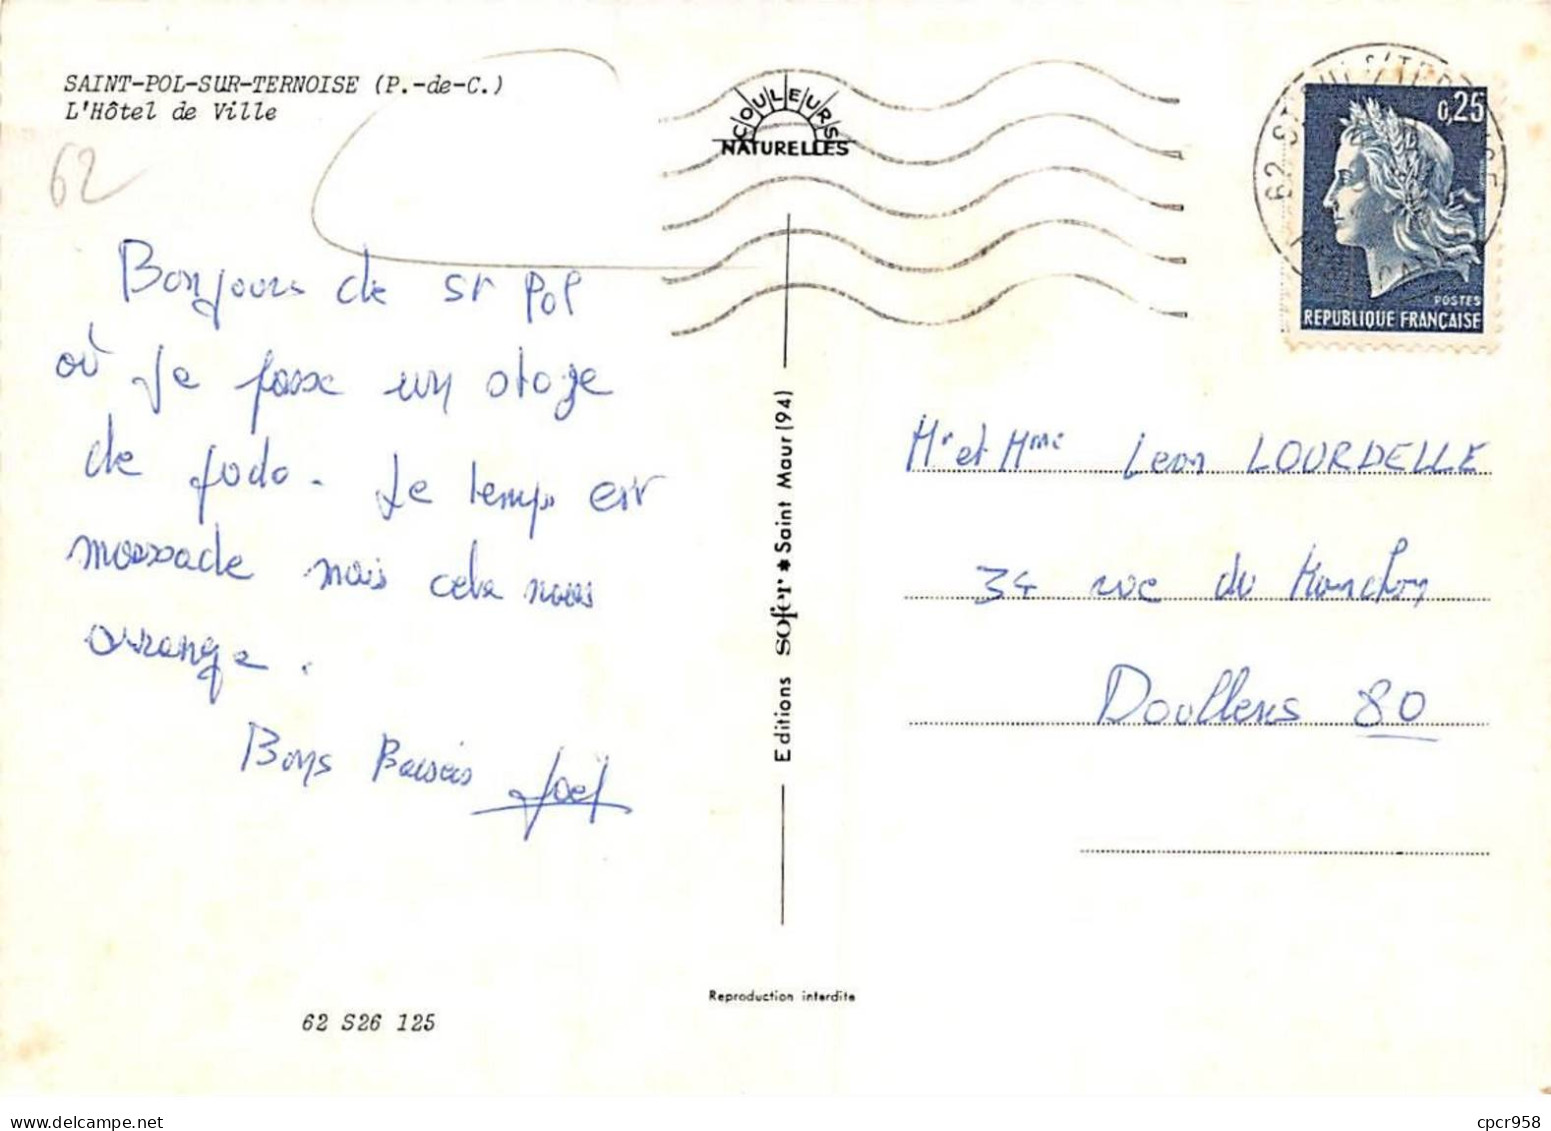 SAINT-POL-SUR-TERNOISE (P.-de-C.)
L'Hôtel de Ville
62
Bonjours de St Pol
où je passe un stage
de judo. Le temps est
maussade mais cela nous
arrange.
Bons Baisers Joël
COULEURS
NATURELLES
Editions sofer ★ Saint Maur (94)
Reproduction interdite
62 S26 125
0,25
POSTES
REPUBLIQUE FRANÇAISE
Mr et Mme Leon LOURDELLE
34 rue du
Doullens 80
cpcr958